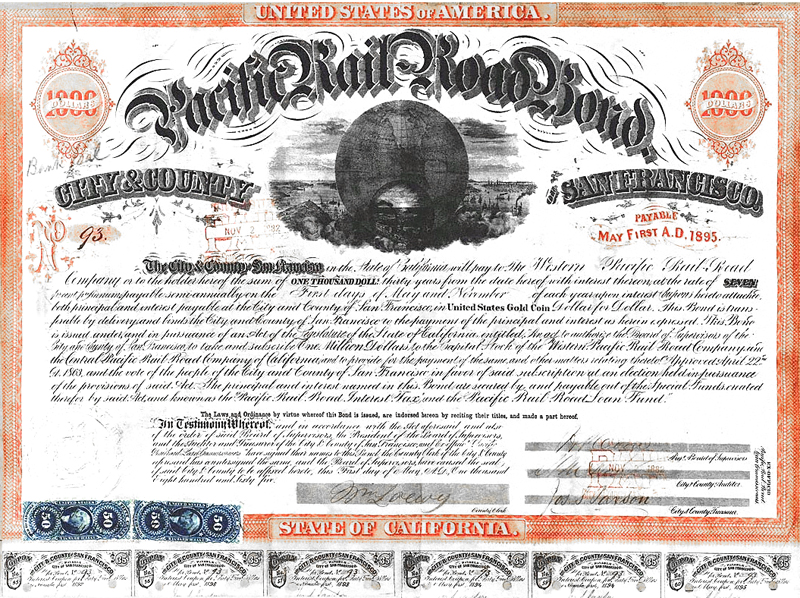 UNITED STATES OF AMERICA.
Pacific Rail-Road Bond,
1000 DOLLARS
1000 DOLLARS
CITY & COUNTY
SAN FRANCISCO.
No 93.
NOV 2
PAYABLE
MAY FIRST A.D. 1895.
The City & County of San Francisco in the State of California will pay to the Western Pacific Rail-Road
Company or to the holder hereof the sum of ONE THOUSAND DOLLS: thirty years from the date hereof with interest thereon, at the rate of SEVEN
per annum payable semi-annually on the First days of May and November of each year upon interest coupons hereto attached
both principal and interest payable at the City and County of San Francisco, in United States Gold Coin Dollar for Dollar. This Bond is trans-
ferable by delivery, and binds the City and County of San Francisco to the payment of the principal and interest as herein expressed. This Bond
is issued under, and in pursuance of an Act of the Legislature of the State of California entitled, "An act to authorize the Board of Supervisors of the
City and County of San Francisco, to take and subscribe One Million Dollars to the Capital Stock of the Western Pacific Rail Road Company and
the Central Pacific Rail Road Company of California, and to provide for the payment of the same, and other matters relating thereto" Approved April 22nd
1863, and the vote of the people of the City and County of San Francisco in favor of said subscription at an election held in pursuance
of the provisions of said Act. The principal and interest named in this Bond are secured by, and payable out of the Special Funds, created
therefor by said Act, and known as the "Pacific Rail Road Interest Tax," and the "Pacific Rail Road Loan Fund."
The Laws and Ordinance by virtue whereof this Bond is issued, are indorsed hereon by reciting their titles, and made a part hereof.
In Testimony Whereof, and in accordance with the Act aforesaid and also
of the order of said Board of Supervisors, the President of the Board of Supervisors,
and the Auditor and Treasurer of the City & County of San Francisco, and Ex officio
have signed their names to this Bond, the County Clerk of the City & County
aforesaid has countersigned the same, and the Board of Supervisors, have caused the seal
of said City & County to be affixed hereto, this First day of May, A.D. One thousand
Eight hundred and sixty five.
Prest. Board of Supervisors
City & County Auditor
City & County Treasurer.
Wm Loewy
County Clerk
50 50 50 50
STATE OF CALIFORNIA.
CITY & COUNTY OF SAN FRANCISCO $35
CITY & COUNTY OF SAN FRANCISCO $35
CITY & COUNTY OF SAN FRANCISCO $35
CITY & COUNTY OF SAN FRANCISCO $35
CITY & COUNTY OF SAN FRANCISCO $35
CITY & COUNTY OF SAN FRANCISCO $35